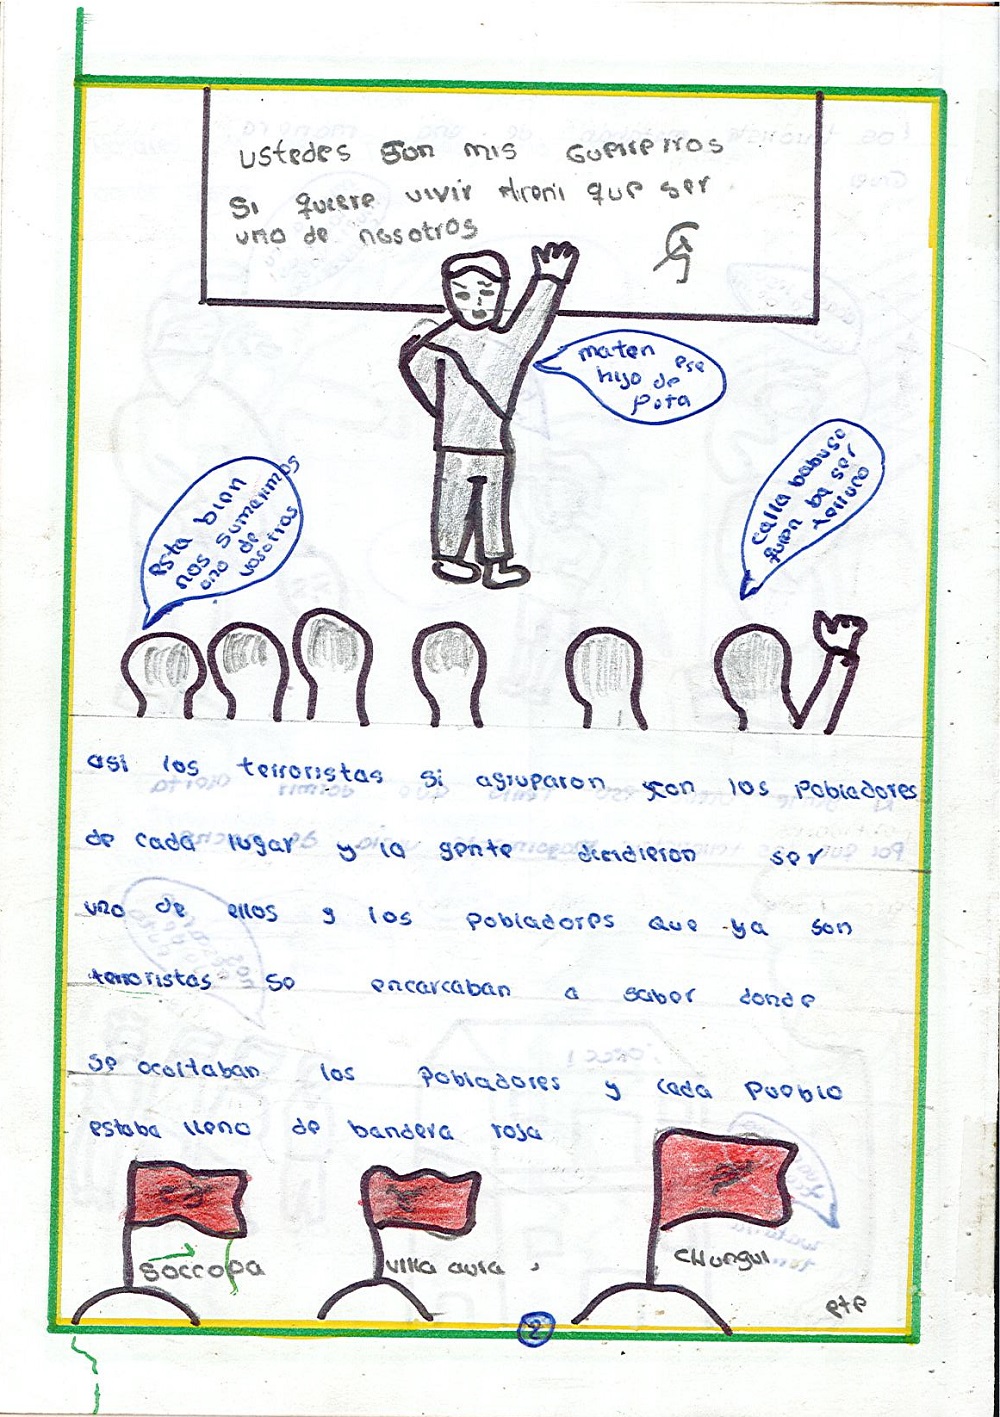 ustedes son mis Guerreros
Si quiere vivir que ser
uno de nosotros
maten ese
hijo de
puta
Esta bien
nos sumarimos
uno de
vosotros
calla babuso
quien ba ser
asi los terroristas si agruparon con los Pobladores
de cada lugar y la gente dicidieron ser
uno de ellos y los Pobladores que ya son
terroristas se encarcaban a saber donde
se ocoltaban los Pobladores y cada Pueblo
estaba lleno de bandera roja
Soccopa
villa aura
Chungui
etc
2